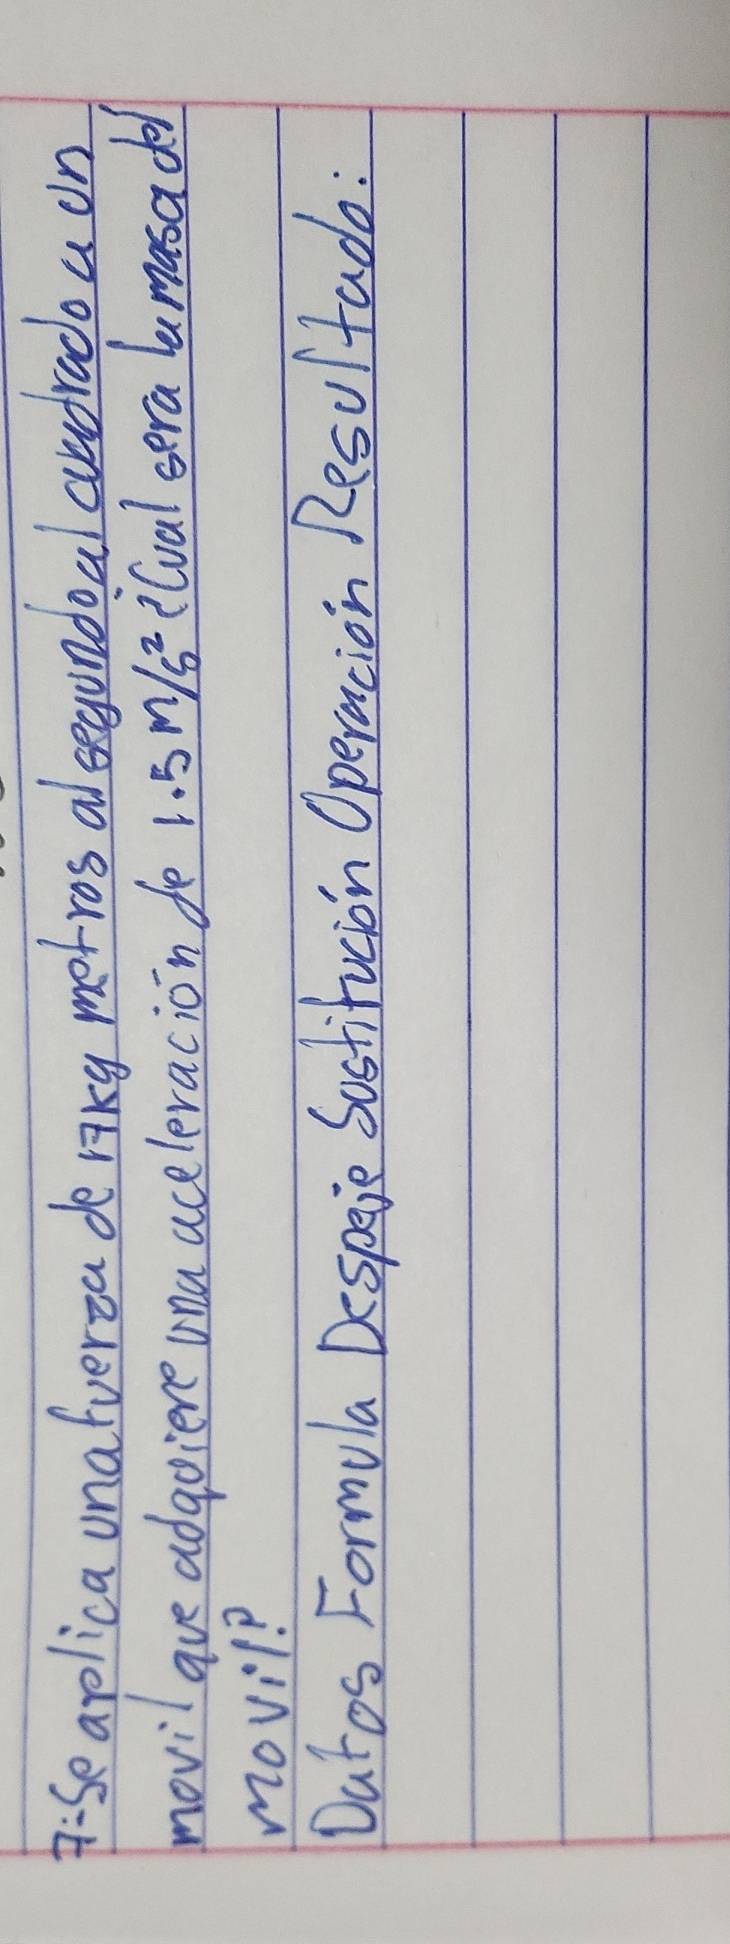 7.- Se aplica una fuerza de 17kg metros al segundo al cuadrado a un
movil que adquiere una aceleración de 1.5 m/s² ¿Cual sera la masa del
movil?
Datos Formula Despeje Sustitución Operación Resultado: